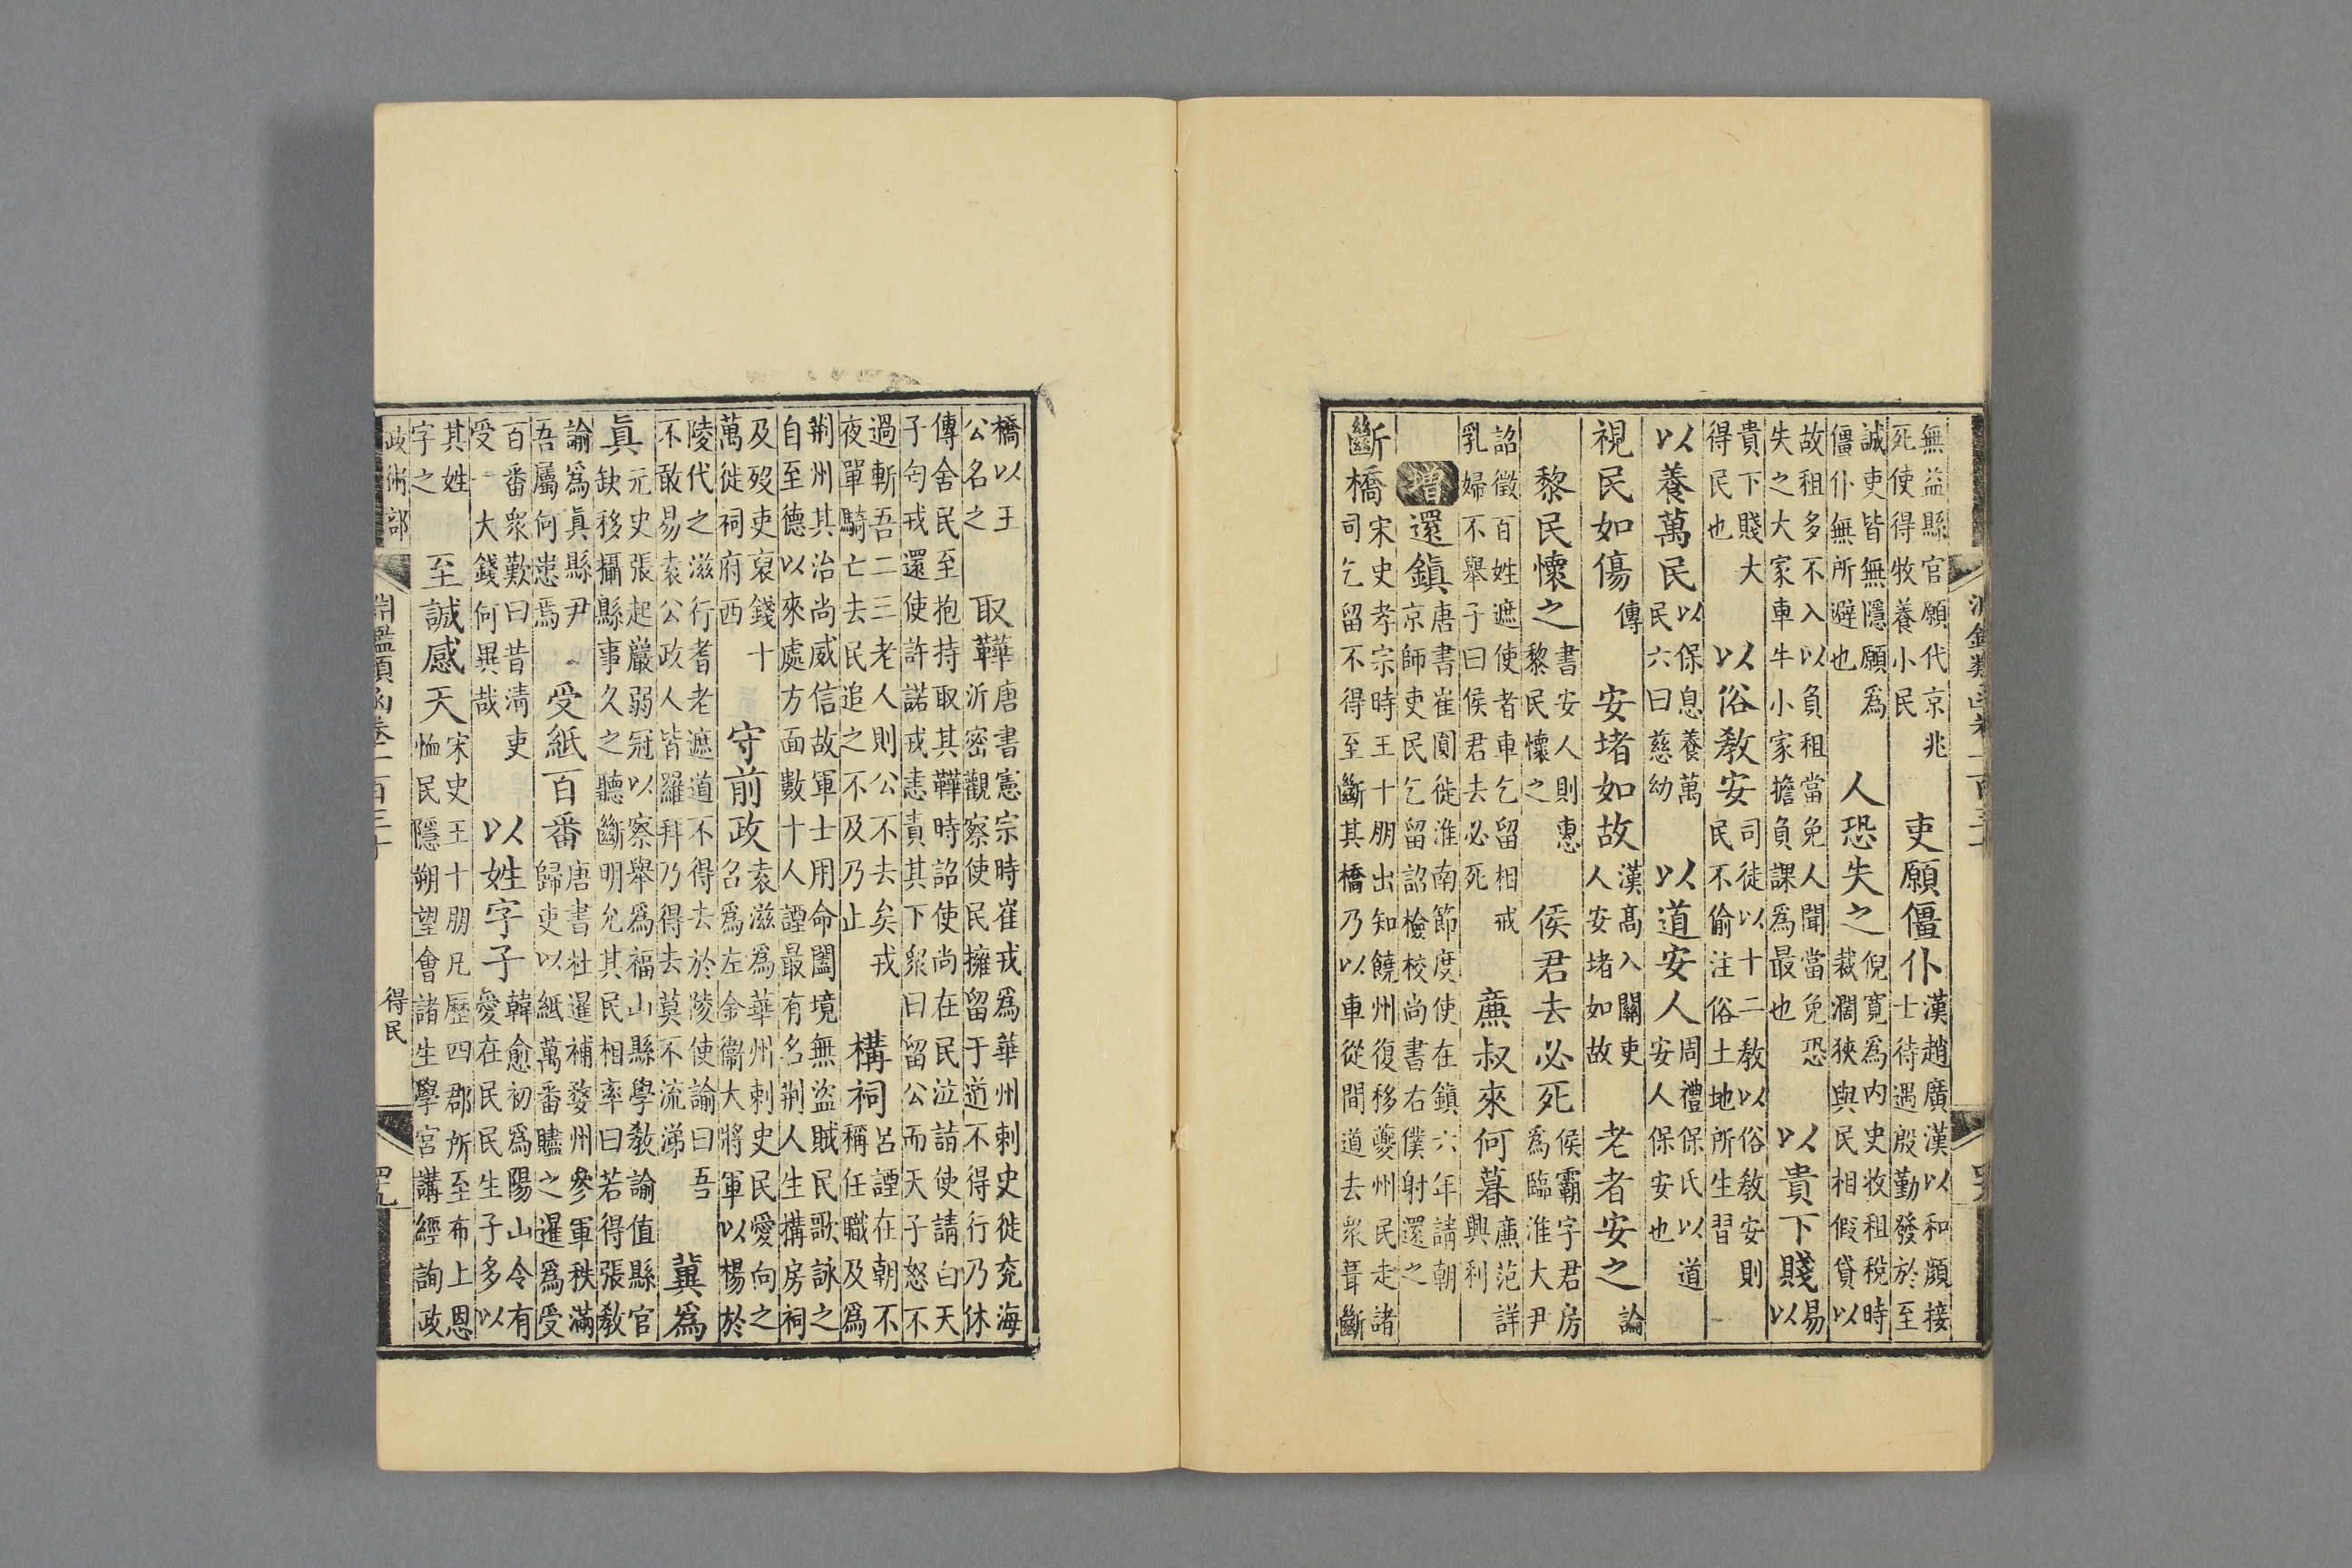 無益縣官願代京兆
死使得牧養小民
吏願僵仆
漢趙廣漢以和顔接
士待遇殷勤發於至
誠吏皆無隱願爲
僵仆無所避也
人恐失之
倪寬爲内史收租稅時
裁濶狹與民相假貸以
故租多不入以負租當免人聞當免恐
失之大家車牛小家擔負課爲最也
以貴下賤
易
以
貴下賤大
得民也
以俗敎安
司徒以十二敎以俗敎安則
民不偷注俗土地所生習
以養萬民
以保息養萬
民六曰慈幼
以道安人
周禮保氏以道
安人保安也
視民如傷
傳
安堵如故
漢髙入關吏
人安堵如故
老者安之
論
黎民懷之
書安人則惠
黎民懷之
侯君去必死
侯霸字君房
爲臨淮大尹
詔徵百姓遮使者車乞留相戒
乳婦不舉子曰侯君去必死
亷叔來何暮
亷范詳
興利
增
還鎭
唐書崔圓徙淮南節度使在鎮六年請朝
京師吏民乞留詔檢校尚書右僕射還之
斷橋
宋史孝宗時王十朋出知饒州復移夔州民走諸
司乞留不得至斷其橋乃以車從間道去衆葺斷
橋以王
公名之
取鞾
唐書憲宗時崔戎爲華州刺史徙兗海
沂密觀察使民擁留于道不得行乃休
傳舍民至抱持取其鞾時詔使尚在民泣詣使請白天
子匄戎還使許諾戎恚責其下衆曰留公而天子怒不
過斬吾二三老人則公不去矣戎
夜單騎亡去民追之不及乃止
構祠
呂諲在朝不
稱任職及爲
荆州其治尚威信故軍士用命闔境無盜賊民歌詠之
自至德以來處方面數十人諲最有名荆人生構房祠
及歿吏裒錢十
萬徙祠府西
守前政
袁滋爲華州刺史民愛向之
召爲左金衞大將軍以楊於
陵代之滋行耆老遮道不得去於陵使諭曰吾
不敢易袁公政人皆羅拜乃得去莫不流涕
冀爲
眞
元史張起巖弱冠以察舉爲福山縣學敎諭值縣官
缺移攝縣事久之聽斷明允其民相率曰若得張敎
諭爲眞縣尹
吾屬何患焉
受紙百番
唐書杜暹補婺州參軍秩滿
歸吏以紙萬番贐之暹爲受
百番衆歎曰昔淸吏
受一大錢何異哉
以姓字子
韓愈初爲陽山令有
愛在民民生子多以
其姓
字之
至誠感天
宋史王十朋凡歷四郡所至布上恩
恤民隱朔望會諸生學宮講經詢政
政術部
淵鑑類函卷一百三十
得民